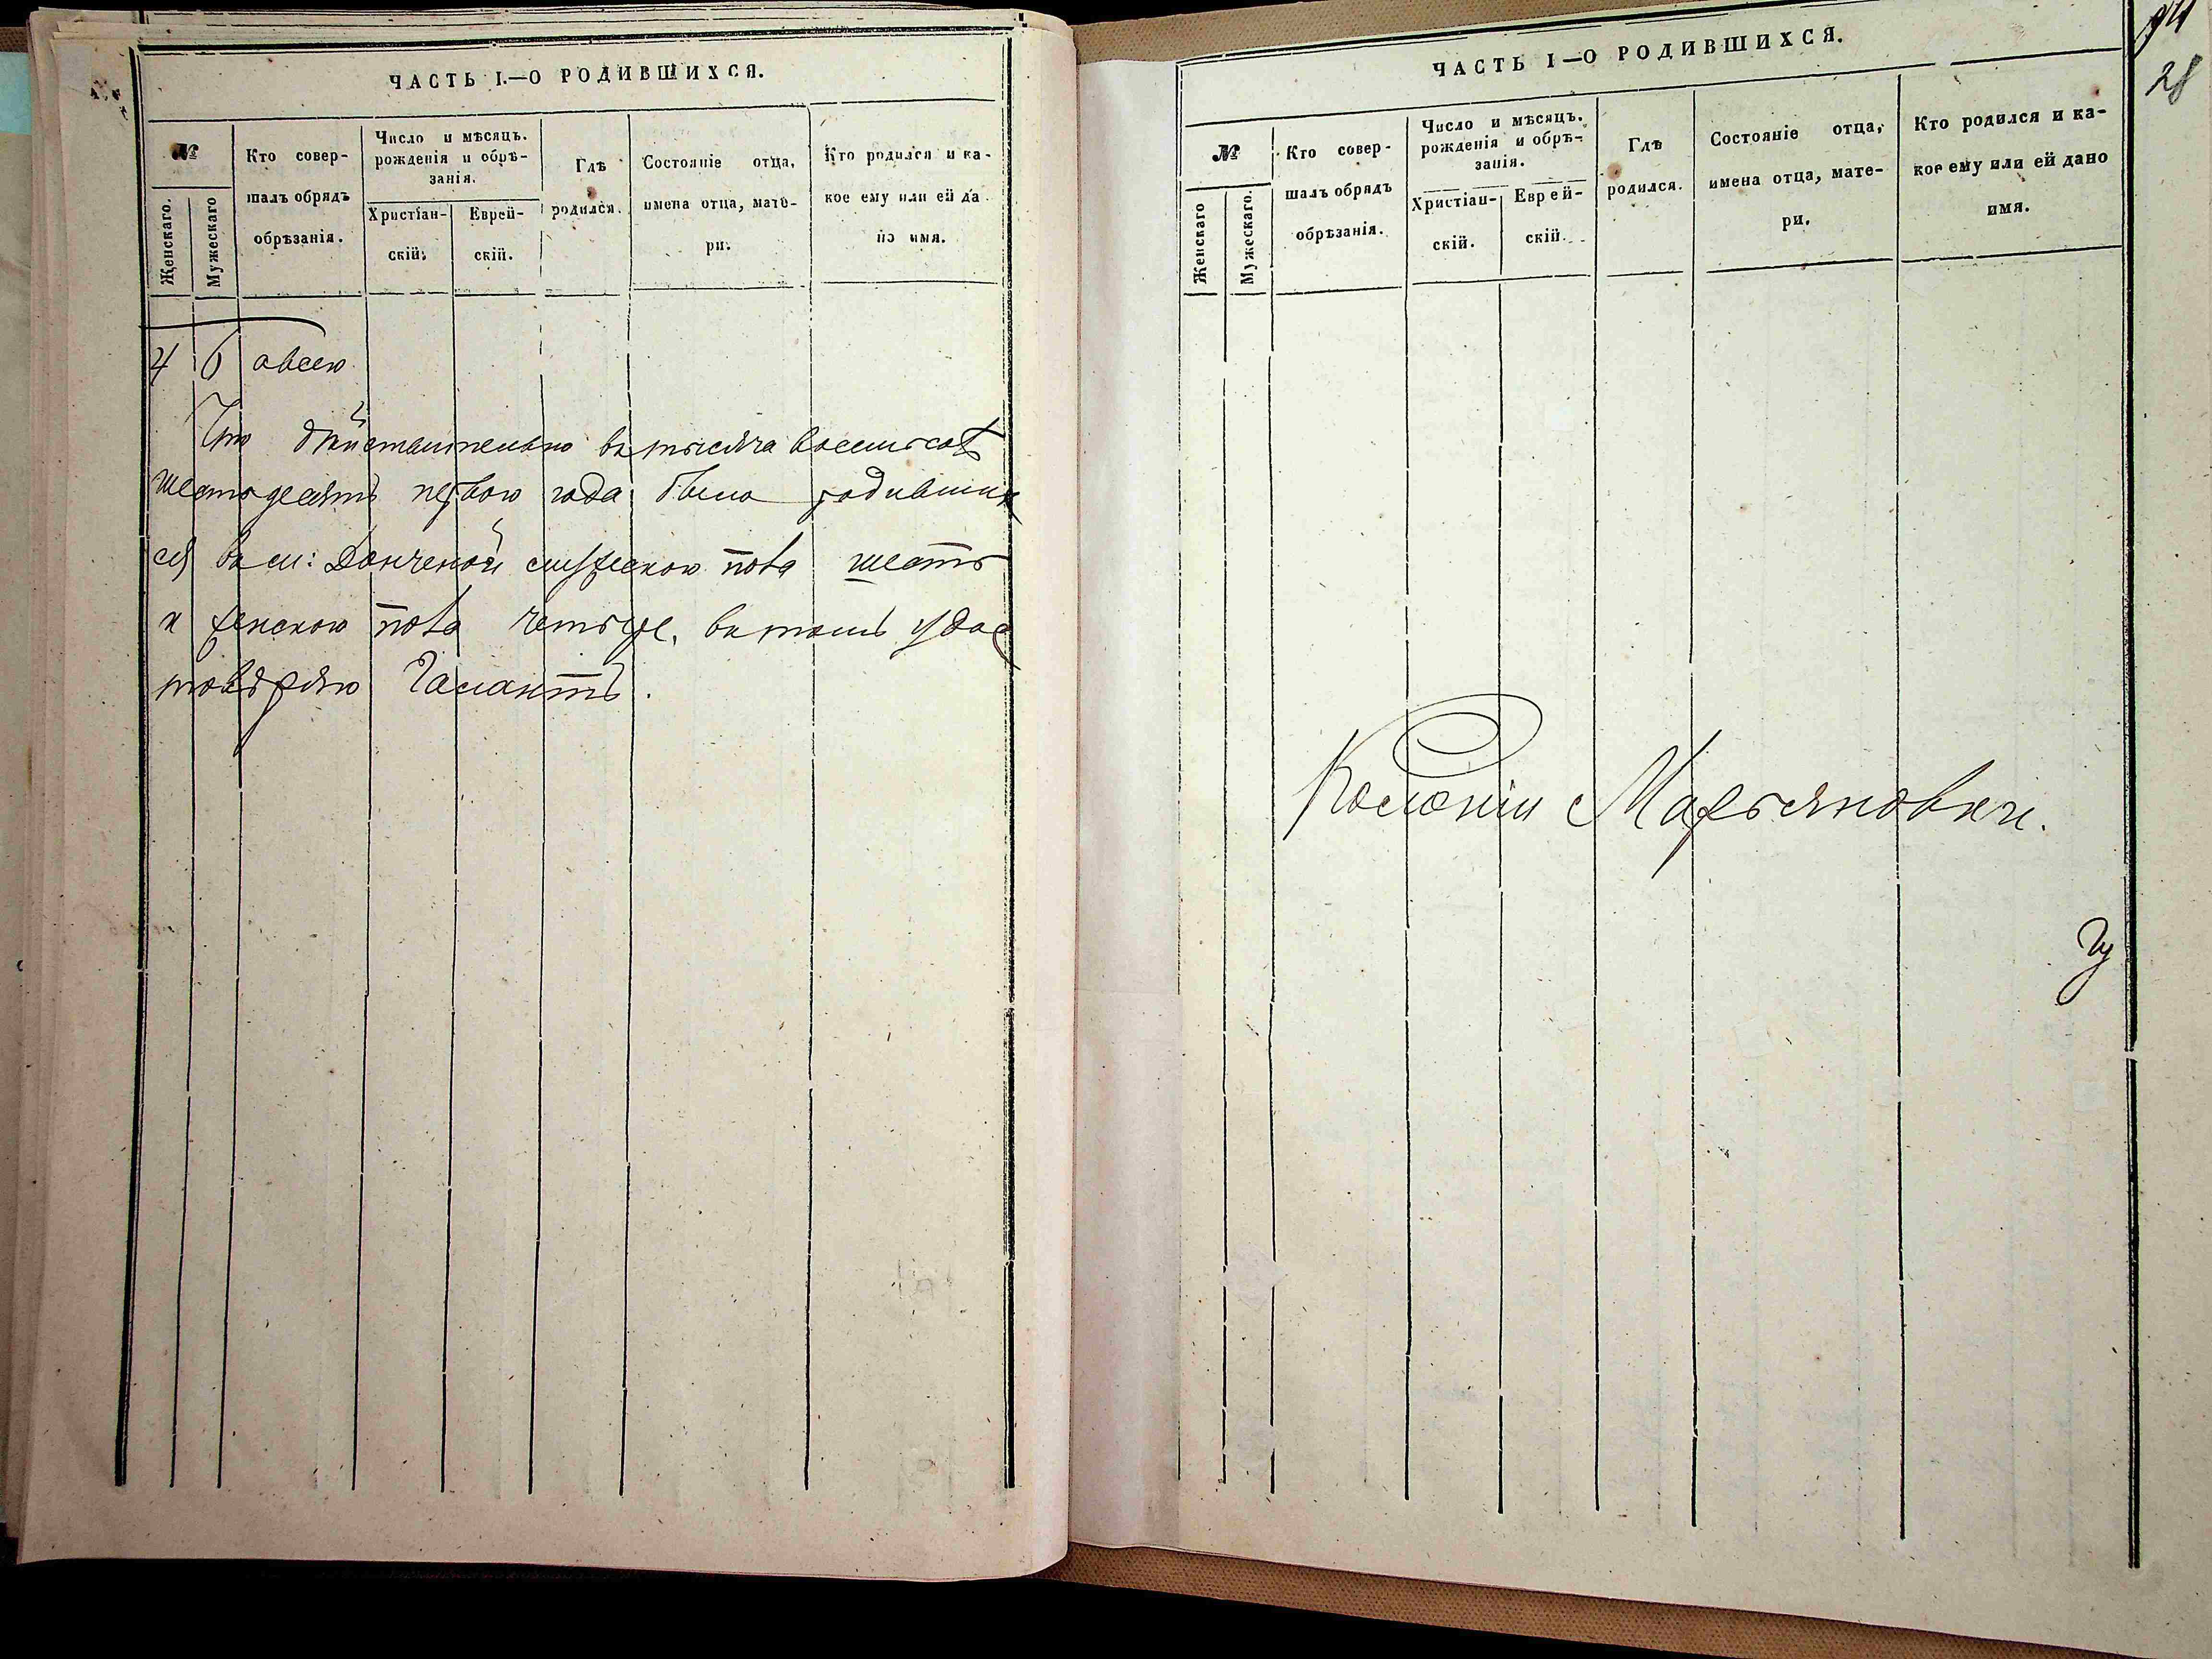 ЧАСТЬ I.—О РОДИВШИХСЯ.
№
Женскаго.
Мужескаго
Кто совер-
шалъ обрядъ
обрѣзанія.
Число и мѣсяцъ.
рожденія и обрѣ-
занія.
Христіан-
скій.
Еврей-
скій.
Гдѣ
родился.
Состояніе отца,
имена отца, мате-
ри.
Кто родился и ка-
кое ему или ей да
но имя.
4 6 а всего
Что дѣйствительно въ тысяча восемьсотъ
шестьдесятъ перваго года было родивших
ся въ м: мужескаго пола шесть
и женскаго пола четыре, въ томъ удос
товѣряю
ЧАСТЬ I—О РОДИВШИХСЯ.
№
Женскаго
Мужескаго.
Кто совер-
шалъ обрядъ
обрѣзанія.
Число и мѣсяцъ.
рожденія и обрѣ-
занія.
Христіан-
скій.
Еврей-
скій.
Гдѣ
родился.
Состояніе отца,
имена отца, мате-
ри.
Кто родился и ка-
кое ему или ей дано
имя.
28
Колоніи Марьяновки.